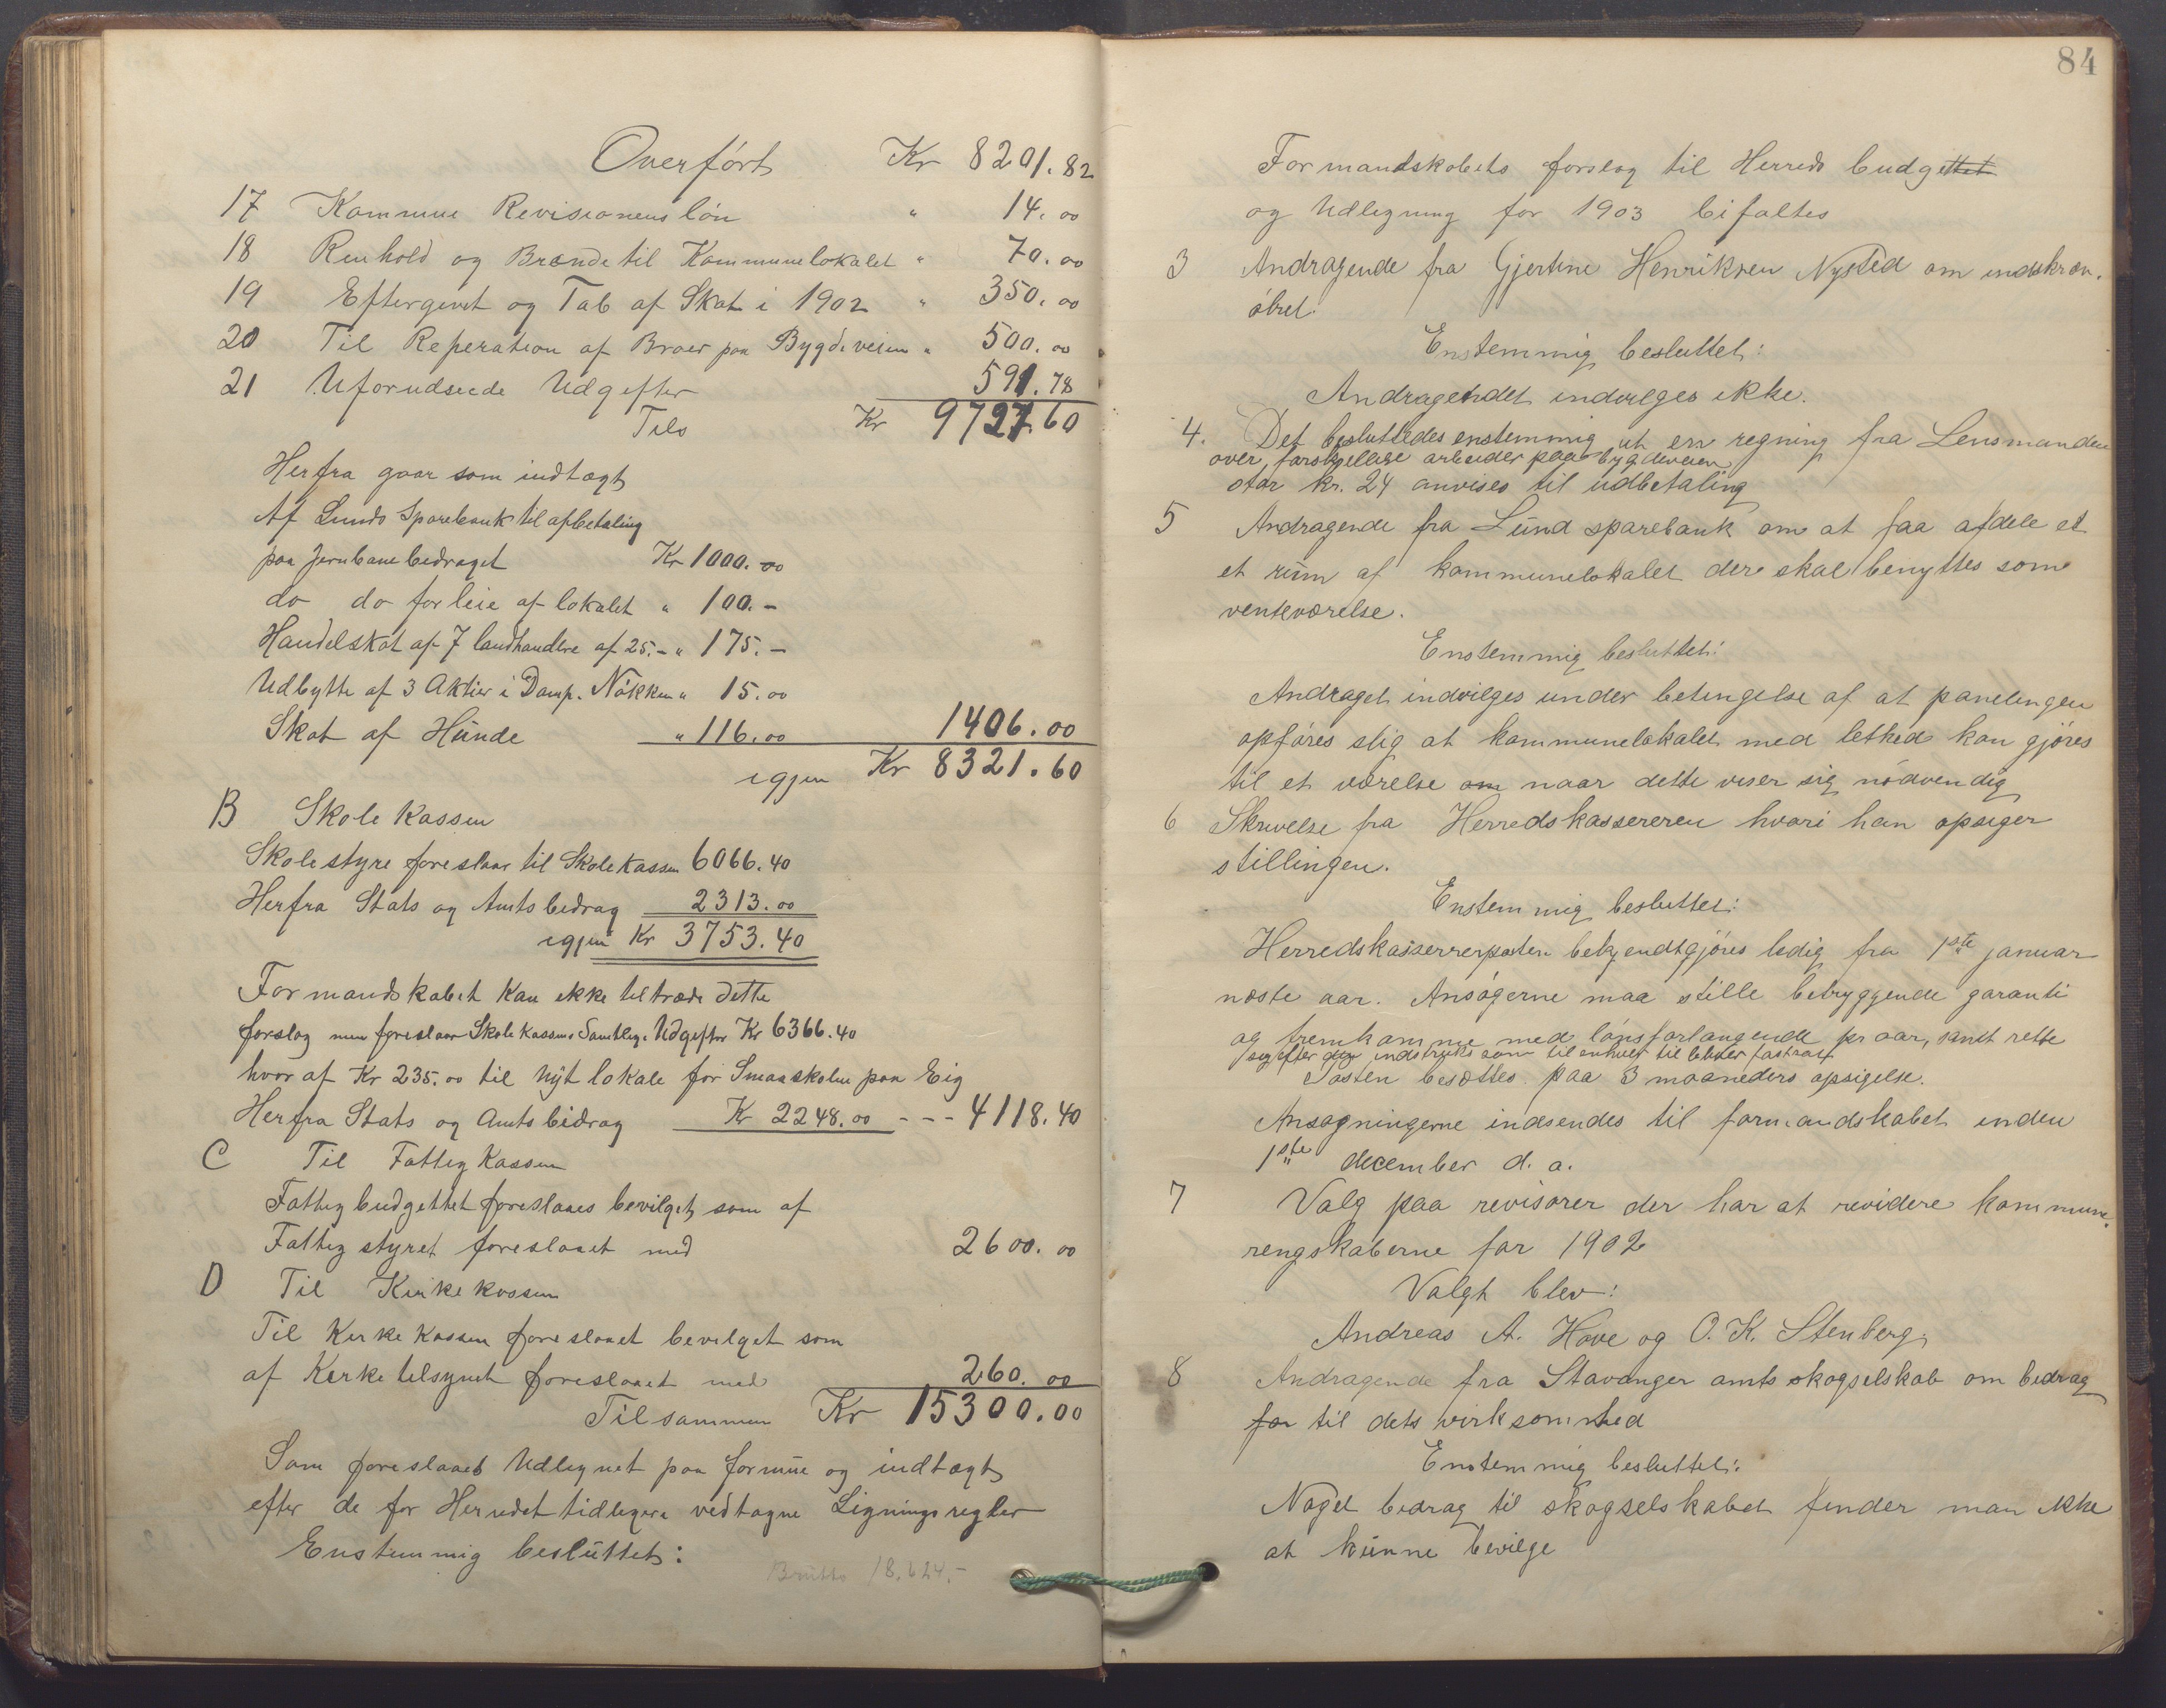 Overført Kr 8201.82
17 Kommune Revisionens løn " 14.00
18 Renhold og Brænde til Kommunelokalet " 70.00
19 Eftergivet og Tab af Skat i 1902 " 350.00
20 Til Reperation af Broer paa Bygdeveien " 500.00
21 Uforudseede Udgifter 591.78
Tils Kr 9727.60
Herfra gaar som indtægt
Af Lunds Sparebank til afbetaling
paa Jernbanebedraget Kr 1000.00
do do for leie af lokalet " 100.-
Handelskat af 7 landhandlere af 25.- " 175.-
Udbytte af 3 Aktier i Damp. Nøkken " 15.00
Skat af Hunde " 116.00 1406.00
igjen Kr 8321.60
B Skole Kassen
Skolestyre foreslaar til Skolekassen 6066.40
Herfra Stats og Amts bedrag 2313.00
igjen Kr 3753.40
Formandskabet kan ikke tiltræde dette
forslag men foreslaar Skolekassens Samtlige Udgifter Kr 6366.40
hvor af Kr 235.00 til nyt lokale for Smaaskolen paa Eig
Herfra Stats og Amts bidrag Kr 2248.00 --- 4118.40
C Til Fattig Kassen
Fattigbudgettet foreslaaes bevilget som af
Fattig styret foreslaaet med 2600.00
D Til Kirkekassen
Til Kirkekassen foreslaaet bevilget som
af Kirketilsynet foreslaaet med 260.00
Tilsammen Kr 15300.00
Som foreslaaes Udlignet paa formue og indtægt
efter de for Herredet tidligere vedtagne Ligningsregler
Enstemmig besluttet:
Brutto 18.624.-
84
Formandskabets forslag til Herreds budgettet
og Udligning for 1903 bifaltes
3 Andragende fra Gjertine Henriksen Nysted om indskræn.
øbet.
Enstemmig besluttet:
Andragendet indvilges ikke.
4. Det besluttedes enstemmig at en regning fra Lensmanden
over forskjellige arbeider paa bygdeveien
stor kr. 24 anvises til udbetaling
5 Andragende fra Lund sparebank om at faa afdele et
et rum af kommunelokalet der skal benyttes som
venteværelse.
Enstemmig besluttet:
Andraget indvilges under betingelse af at panelingen
opføres slig at kommunelokalet med lethed kan gjøres
til et værelse om naar dette viser sig nødvendig
6 Skrivelse fra Herredskassereren hvori han opsiger
stillingen.
Enstemmig besluttet:
Herredskasserrerposten bekjendtgjøres ledig fra 1ste januar
næste aar. Ansøgerne maa stille betryggende garanti
og fremkomme med lønsforlangende pr aar, samt rette
sig efter den indstruks som til enhver tid bliver fastsat
Posten besættes paa 3 maaneders opsigelse.
Ansøgningerne indsendes til formandskabet inden
1ste december d. a.
7 Valg paa revisorer der har at revidere kommune.
rengskaberne for 1902
Valgt blev:
Andreas A. Hove og O. K. Stenberg.
8 Andragende fra Stavanger amts skogselskab om bedrag
for til dets virksomhed
Enstemmig besluttet:
Noget bedrag til skogselskabet finder man ikke
at kunne bevilge